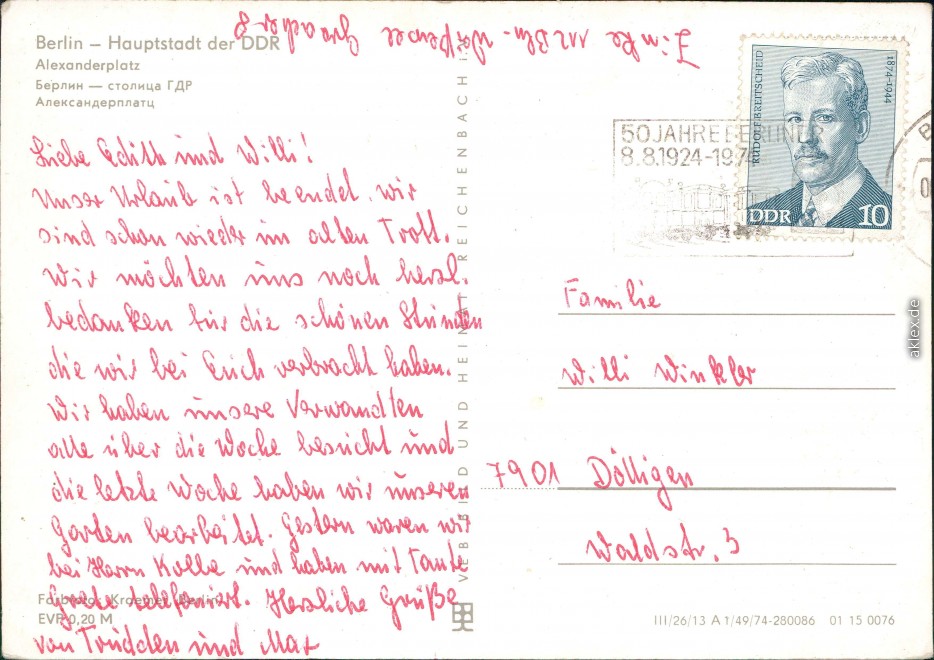 Berlin – Hauptstadt der DDR
Alexanderplatz
Берлин — столица ГДР
Александерплатц
Liebe Edith und Willi!
Unser Urlaub ist beendet, wir
sind schon wieder im alten Trott.
Wir möchten uns noch herzl.
bedanken für die schönen Stunden
die wir bei Euch verbracht haben.
Wir haben unsere Verwandten
alle über die Woche besucht und
die letzte Woche haben wir unseren
Garten bearbeitet. Gestern waren wir
bei Herrn Kolbe und haben mit Tante
Grete telefoniert. Herzliche Grüße
von Trudchen und Max
Farbfoto: Kraemer, Berlin
EVP 0,20 M
VEB BILD UND HEIMAT REICHENBACH i.
50 JAHRE BERLINER
8.8.1924-1974
RUDOLF BREITSCHEID
1874-1944
DDR 10
Familie
Willi Winkler
7901 Dölligen
Waldstr. 3
III/26/13 A 1/49/74-280086 01 15 0076
aklex.de